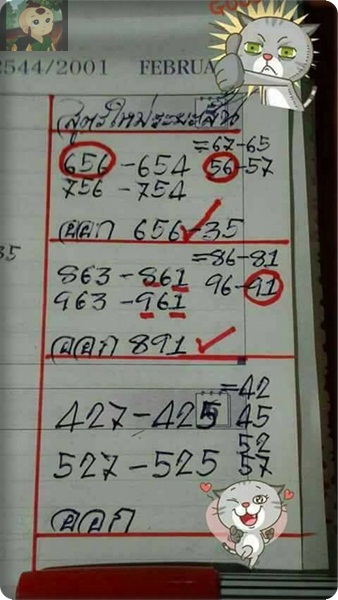 GOO
2544/2001 FEBRUA
สูตรใหม่ระยะสั้น
=67-65
656-654 56-57
756-754
ออก 656-35
35
=86-81
863-861 96-91
963-961
ออก 891
=42
427-425 45
52
527-525 57
ออก